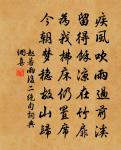 疾風吹雨過前溪
留得餘涼在竹扉
為我拂床仍置席
今朝夢穩故山歸
趙蕃雨後二絕句詞典
網喜